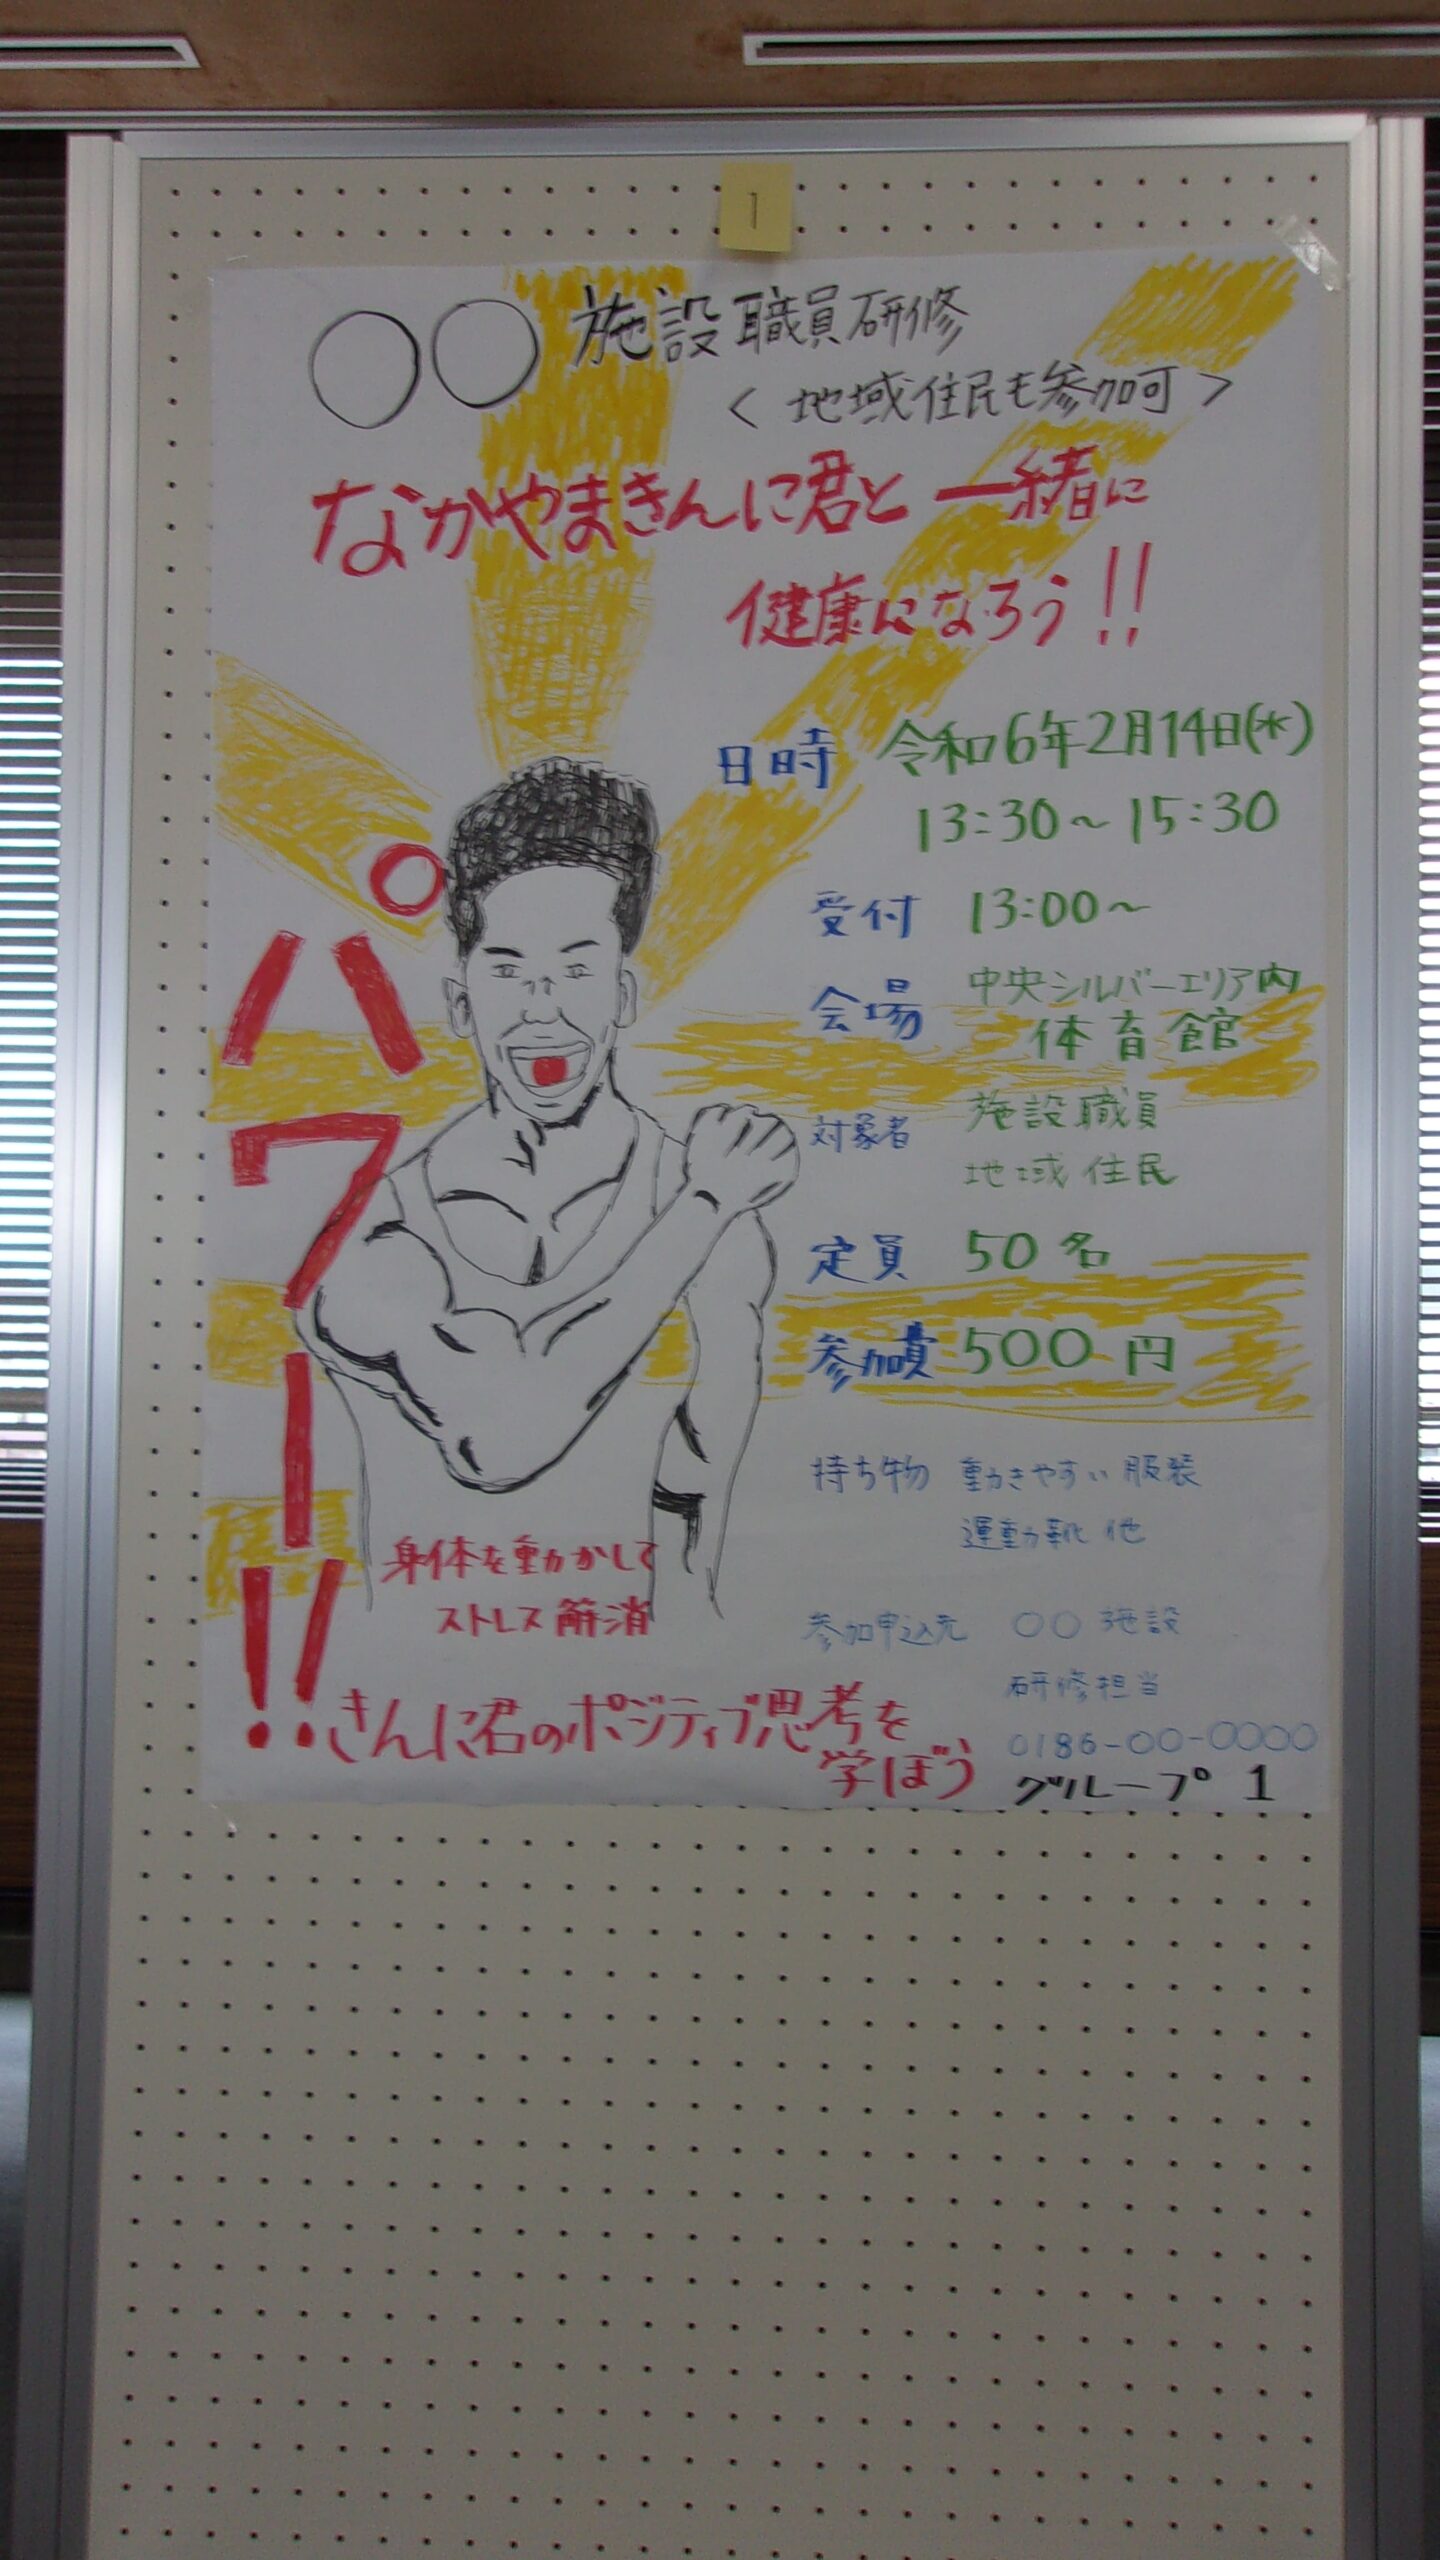 1
○○施設職員研修
＜地域住民も参加可＞
なかやまきんに君と一緒に
健康になろう!!
日時 令和6年2月14日(水)
13:30～15:30
受付 13:00～
会場 中央シルバーエリア内
体育館
対象者 施設職員
地域住民
定員 50名
参加費 500円
持ち物 動きやすい服装
運動靴 他
参加申込先 ○○施設
研修担当
0186-00-0000
パワー!!
身体を動かして
ストレス解消
きんに君のポジティブ思考を
学ぼう
グループ 1